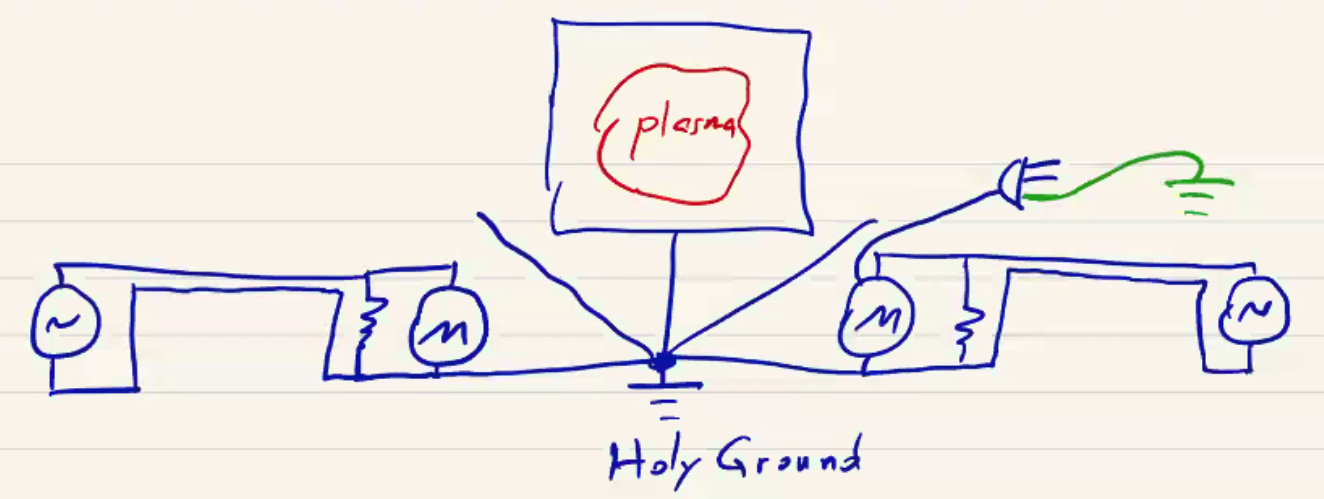 plasma
~
M
M
~
Holy Ground